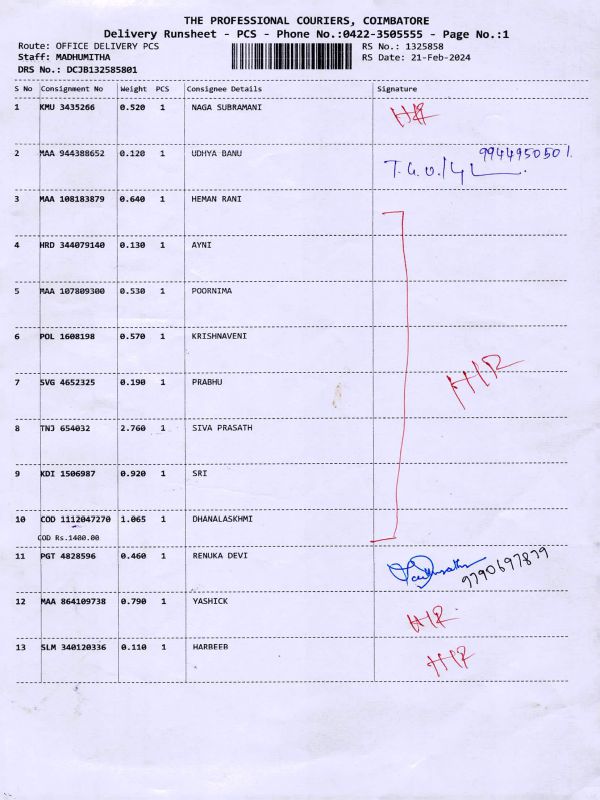 THE PROFESSIONAL COURIERS, COIMBATORE
Delivery Runsheet - PCS - Phone No.:0422-3505555 - Page No.:1
Route: OFFICE DELIVERY PCS RS No.: 1325858
Staff: MADHUMITHA RS Date: 21-Feb-2024
DRS No.: DCJB132585801
S No Consignment No Weight PCS Consignee Details Signature
1 KMU 3435266 0.520 1 NAGA SUBRAMANI H/R
2 MAA 944388652 0.120 1 UDHYA BANU 9944950501.
3 MAA 108183879 0.640 1 HEMAN RANI
4 HRD 344079140 0.130 1 AYNI
5 MAA 107809300 0.530 1 POORNIMA
6 POL 1608198 0.570 1 KRISHNAVENI
H/R
7 SVG 4652325 0.190 1 PRABHU
8 TNJ 654032 2.760 1 SIVA PRASATH
9 KDI 1506987 0.920 1 SRI
10 COD 1112047270 1.065 1 DHANALASKHMI
COD Rs.1400.00
11 PGT 4828596 0.460 1 RENUKA DEVI 9790697879
12 MAA 864109738 0.790 1 YASHICK H/R
13 SLM 340120336 0.110 1 HARBEEB H/R